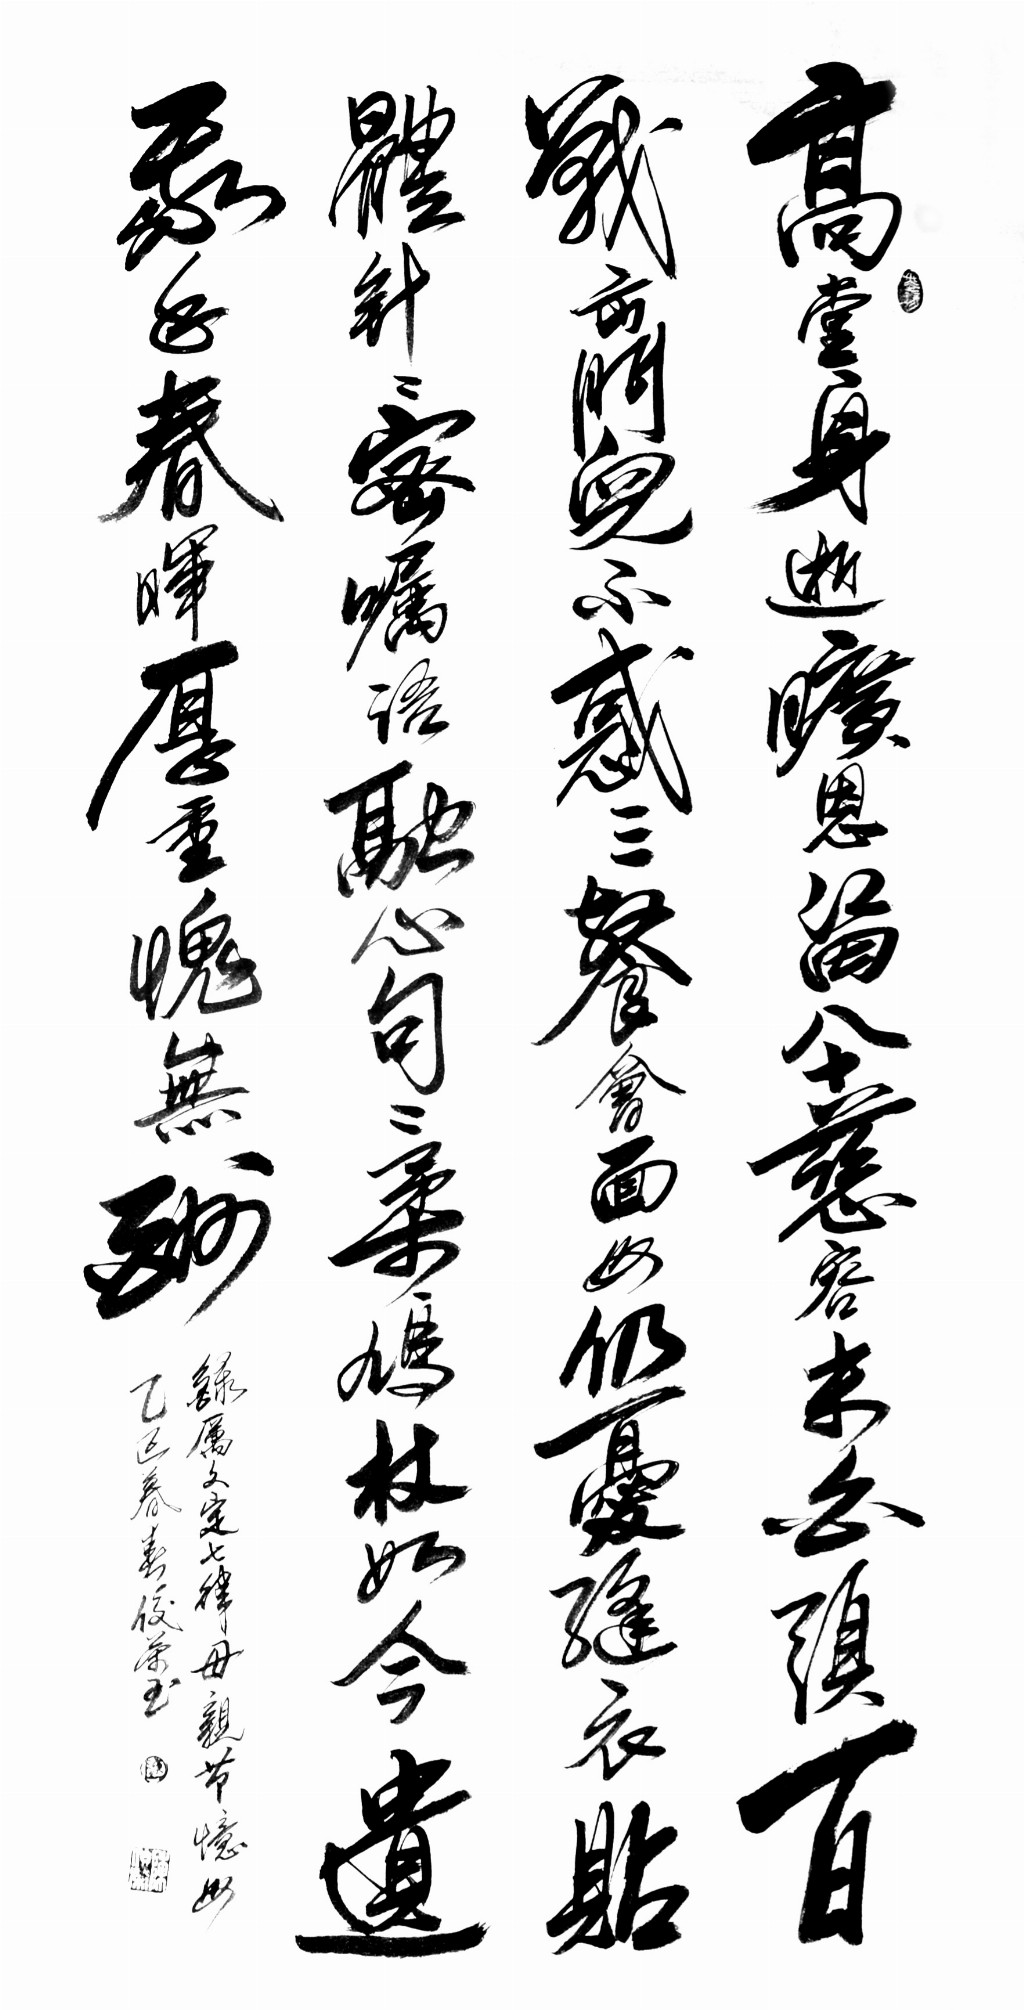 高堂身逝曠恩留八十慈容未白頭百
戰門兒不惑三餐會面母仍憂縫衣貼
體針〻密囑語融心句〻柔鳩杖如今遺
春暉厚重愧無酬
錄厲文定七律母親節憶母
乙巳暮春俊榮玉